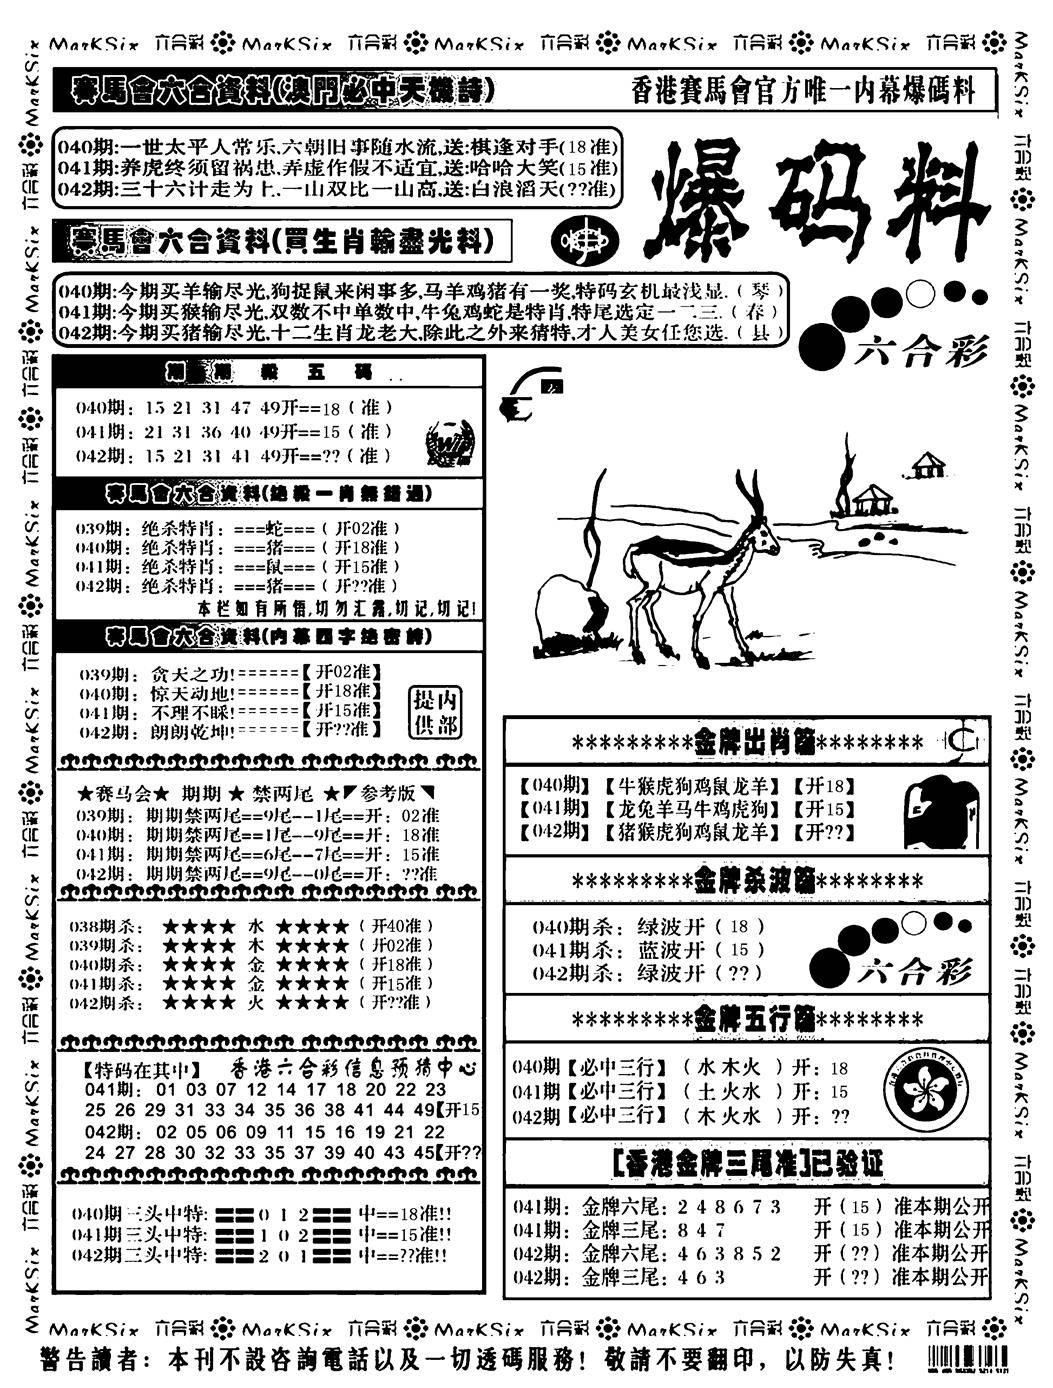 MarKSix 六合彩 MarKSix 六合彩 MarKSix 六合彩 MarKSix 六合彩 MarKSix 六合彩
賽馬會六合資料(澳門必中天機詩)
香港賽馬會官方唯一内幕爆碼料
040期:一世太平人常乐.六朝旧事随水流,送:棋逢对手(18准)
041期:养虎终须留祸患.弄虚作假不适宜,送:哈哈大笑(15准)
042期:三十六计走为上.一山双比一山高,送:白浪滔天(??准)
爆码料
賽馬會六合資料(買生肖輸盡光料)
040期:今期买羊输尽光,狗捉鼠来闲事多,马羊鸡猪有一奖,特码玄机最浅显.(琴)
041期:今期买猴输尽光,双数不中单数中,牛兔鸡蛇是特肖,特尾选定一二三.(春)
042期:今期买猪输尽光,十二生肖龙老大,除此之外来猜特,才人美女任您选.(县)
六合彩
期期殺五碼
040期: 15 21 31 47 49开==18(准)
041期: 21 31 36 40 49开==15(准)
042期: 15 21 31 41 49开==??(准)
賽馬會六合資料(绝殺一肖無錯過)
039期: 绝杀特肖: ===蛇===(开02准)
040期: 绝杀特肖: ===猪===(开18准)
041期: 绝杀特肖: ===鼠===(开15准)
042期: 绝杀特肖: ===猪===(开??准)
本栏如有所悟,切勿汇露,切记,切记!
賽馬會六合資料(内幕四字绝密詩)
039期: 贪天之功!======【开02准】
040期: 惊天动地!======【开18准】
041期: 不理不睬!======【开15准】
042期: 朗朗乾坤!======【开??准】
提内
供部
★赛马会★ 期期 ★ 禁两尾 ★参考版
039期: 期期禁两尾==9尾--1尾==开: 02准
040期: 期期禁两尾==1尾--9尾==开: 18准
041期: 期期禁两尾==6尾--7尾==开: 15准
042期: 期期禁两尾==9尾--0尾==开: ??准
038期杀: ★★★★ 水 ★★★★(开40准)
039期杀: ★★★★ 木 ★★★★(开02准)
040期杀: ★★★★ 金 ★★★★(开18准)
041期杀: ★★★★ 金 ★★★★(开15准)
042期杀: ★★★★ 火 ★★★★(开??准)
【特码在其中】 香港六合彩信息预猜中心
041期: 01 03 07 12 14 17 18 20 22 23
25 26 29 31 33 34 35 36 38 41 44 49【开15
042期: 02 05 06 09 11 15 16 19 21 22
24 27 28 30 32 33 35 37 39 40 43 45【开??
040期三头中特: 0 1 2 中==18准!!
041期三头中特: 1 0 2 中==15准!!
042期三头中特: 2 0 1 中==??准!!
*********金牌出肖篇********
【040期】【牛猴虎狗鸡鼠龙羊】【开18】
【041期】【龙兔羊马牛鸡虎狗】【开15】
【042期】【猪猴虎狗鸡鼠龙羊】【开??】
*********金牌杀波篇********
040期杀: 绿波开(18)
041期杀: 蓝波开(15)
042期杀: 绿波开(??)
六合彩
*********金牌五行篇********
040期【必中三行】(水木火)开: 18
041期【必中三行】(土火水)开: 15
042期【必中三行】(木火水)开: ??
[香港金牌三尾准]已验证
041期: 金牌六尾: 2 4 8 6 7 3 开(15)准本期公开
041期: 金牌三尾: 8 4 7 开(15)准本期公开
042期: 金牌六尾: 4 6 3 8 5 2 开(??)准本期公开
042期: 金牌三尾: 4 6 3 开(??)准本期公开
MarKSix 六合彩 MarKSix 六合彩 MarKSix 六合彩 MarKSix 六合彩 MarKSix 六合彩
警告讀者: 本刊不設咨詢電話以及一切透碼服務! 敬請不要翻印, 以防失真!